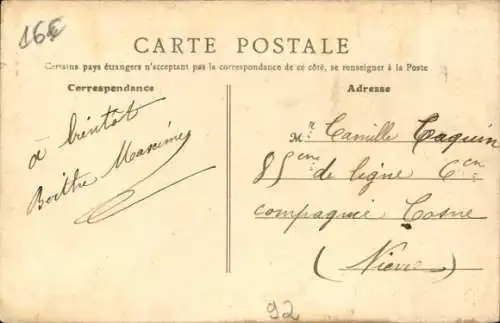 16€
CARTE POSTALE
Certains pays étrangers n'acceptant pas la correspondance de ce côté, se renseigner à la Poste
Correspondance
Adresse
à bientôt
Berthe Maximes
Mr Camille Caquin
85eme de ligne 6em
compagnie Cosne
(Nièvre)
92